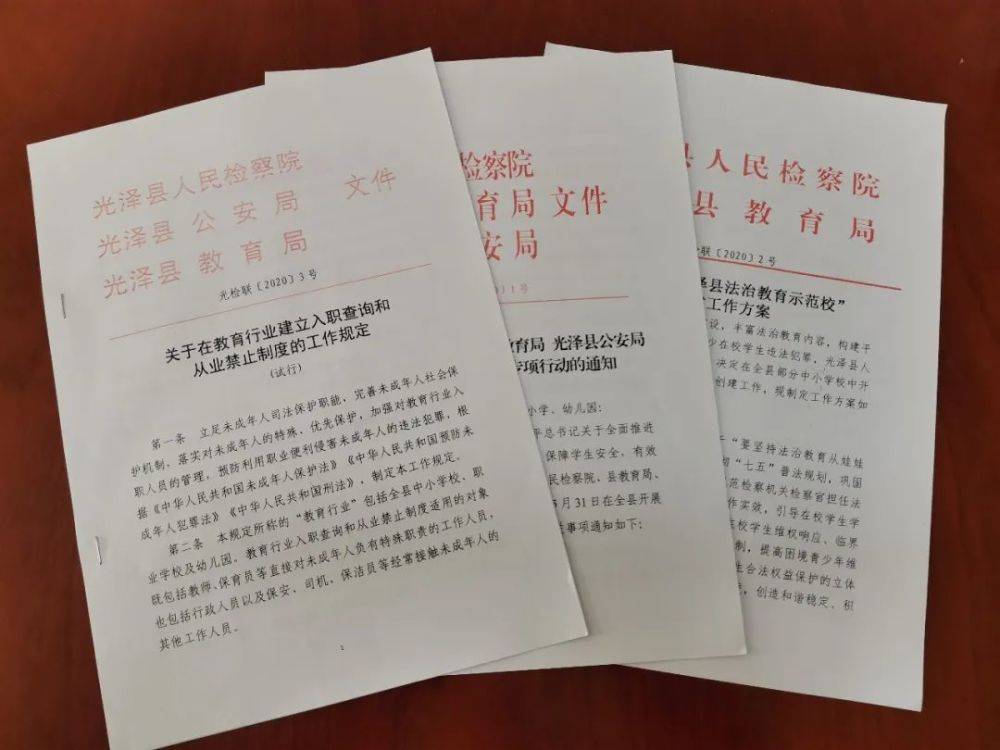 光泽县人民检察院
光泽县公安局 文件
光泽县教育局
光检联〔2020〕3号
关于在教育行业建立入职查询和
从业禁止制度的工作规定
(试行)
第一条 立足未成年人司法保护职能，完善未成年人社会保
护机制，落实对未成年人的特殊、优先保护，加强对教育行业入
职人员的管理，预防利用职业便利侵害未成年人的违法犯罪，根
据《中华人民共和国未成年人保护法》《中华人民共和国预防未
成年人犯罪法》《中华人民共和国刑法》，制定本工作规定。
第二条 本规定所称的“教育行业”包括全县中小学校、职
业学校及幼儿园。教育行业入职查询和从业禁止制度适用的对象
既包括教师、保育员等直接对未成年人负有特殊职责的工作人员，
也包括行政人员以及保安、司机、保洁员等经常接触未成年人的
其他工作人员。
检察院
育局 文件
安局
〕1号
教育局 光泽县公安局
专项行动的通知
小学、幼儿园：
平总书记关于全面推进
保障学生安全、有效
民检察院、县教育局、
月31日在全县开展
事项通知如下：
县人民检察院
县教育局
检联〔2020〕2号
泽县法治教育示范校”
工作方案
设，丰富法治教育内容，构建平
少在校学生违法犯罪，光泽县人
决定在全县部分中小学校中开
创建工作，现制定工作方案如
“要坚持法治教育从娃娃
“七五”普法规划，巩固
范检察机关检察官担任法
作实效，引导在校学生学
校学生维权响应、临界
制，提高困境青少年维
生合法权益保护的立体
，创造和谐稳定、积